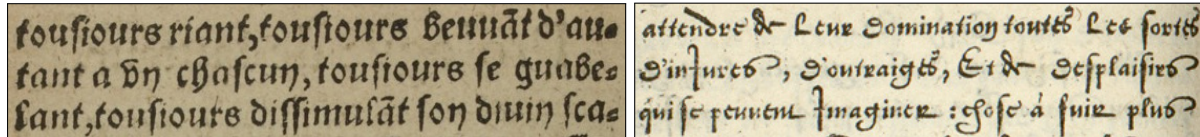 touſiours riant, touſiours beuuãt d'au-
tant a vn chaſcun, touſiours ſe guabe-
lant, touſiours diſſimulãt ſon diuin ſca-
attendre de Leur Domination toutes Les ſortes
D'inJures, D'outraiges, Et de Desplaisirs
qui se peuuent Imaginer : choſe à fuir plus